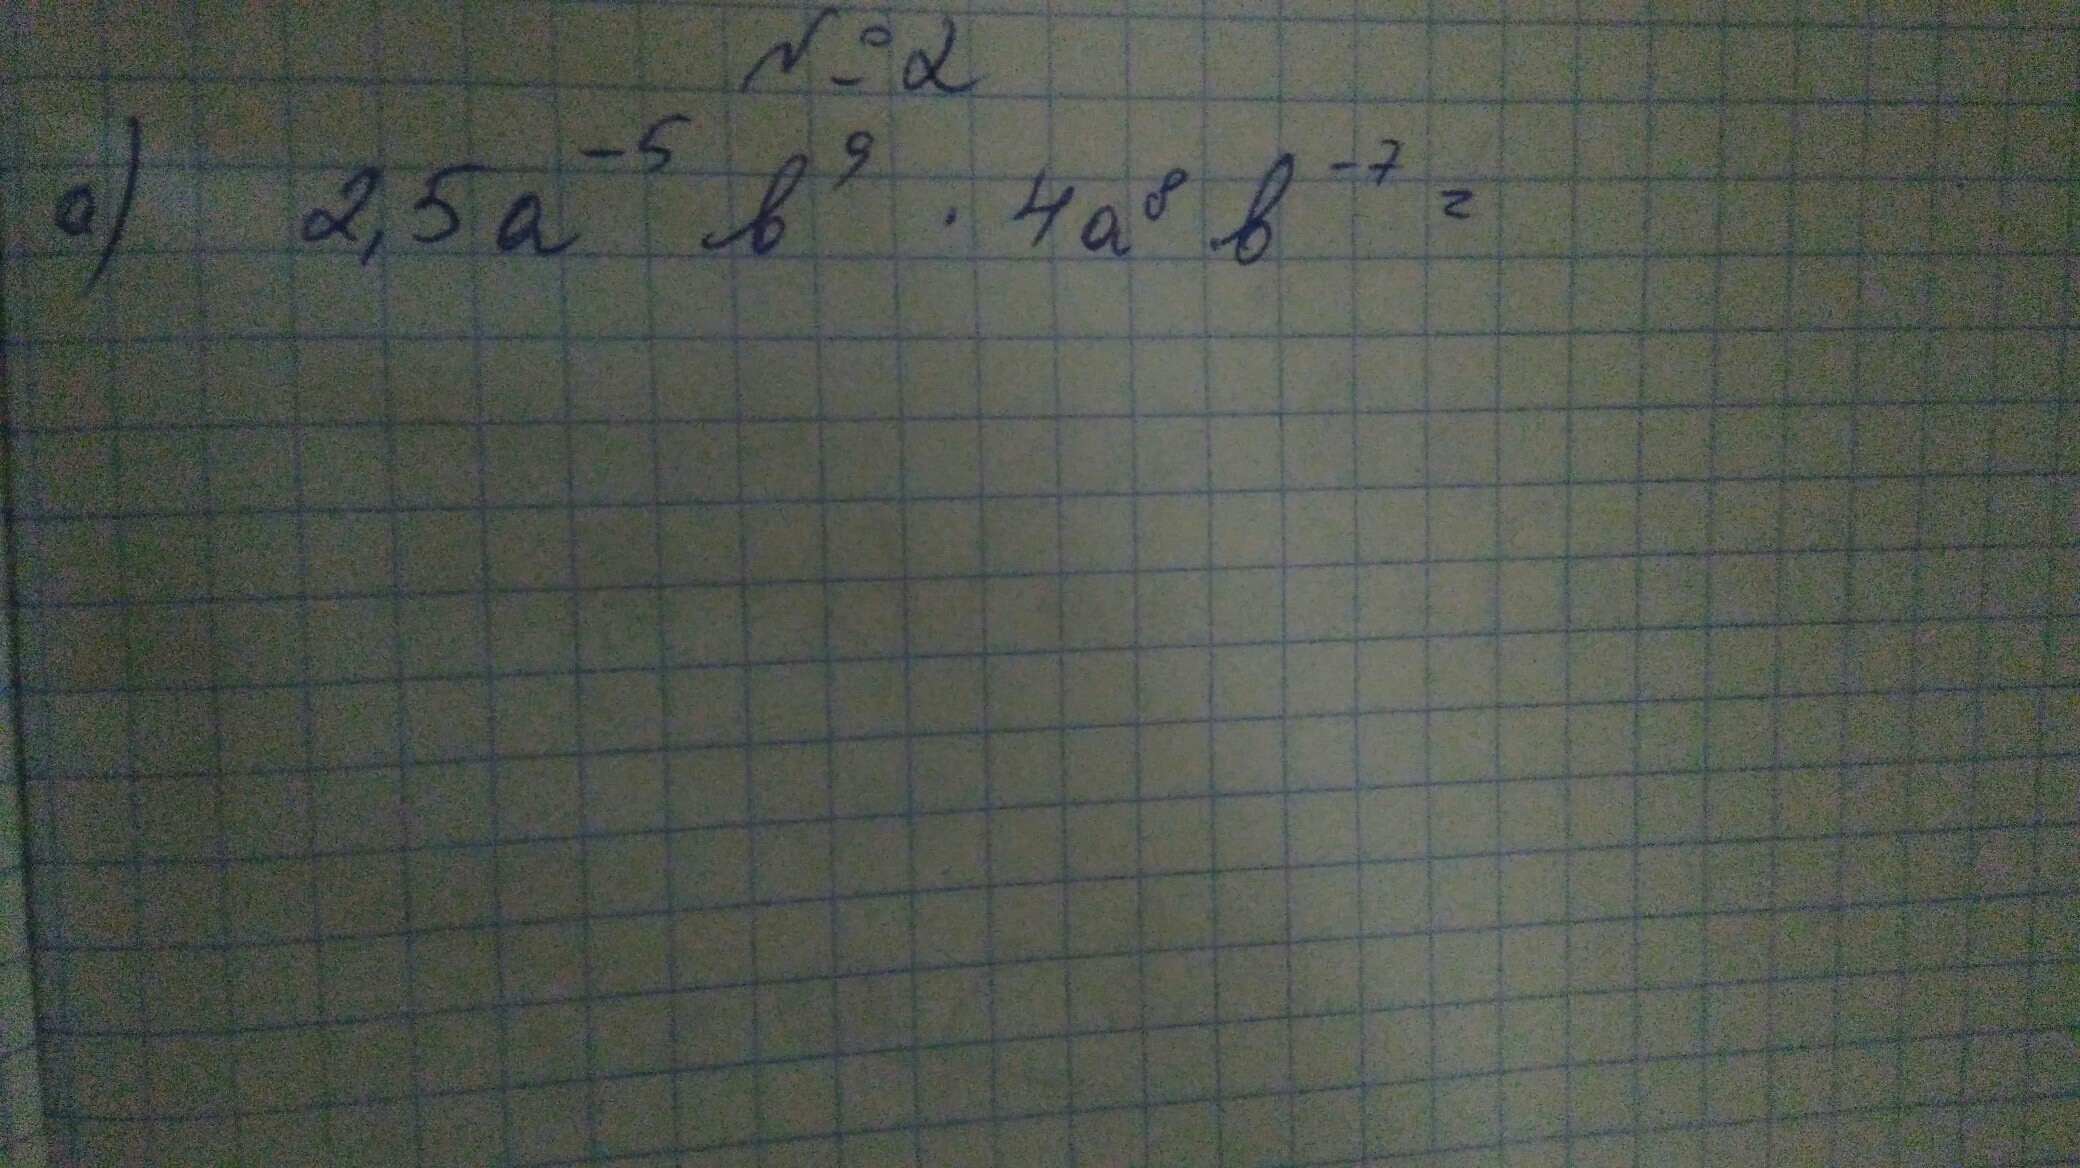 №2
а) 2,5a⁻⁵ b⁹ · 4a⁸ b⁻⁷ =